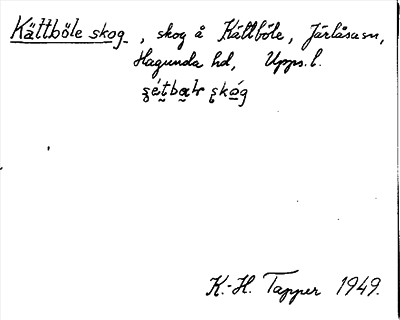 Kättböle skog, skog å Kättböle, Järlåsa sn,
Hagunda hd, Upps. l.
K.-H. Tapper 1949.